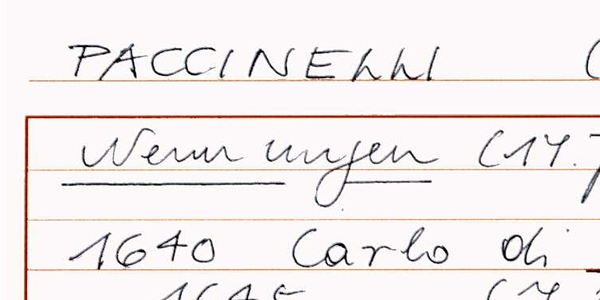 PACCINELLI (
Nennungen (17.
1640 Carlo di
1645 (17.